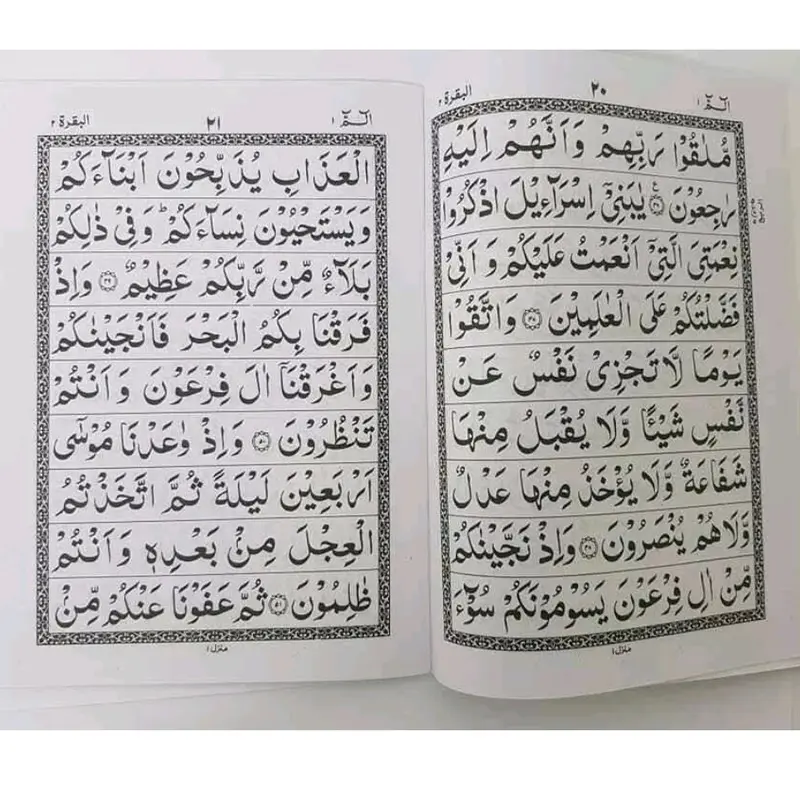 الٓمّٓ ١
٢٠
البقرة ٢
مُّلٰقُوْا رَبِّهِمْ وَاَنَّهُمْ اِلَيْهِ
رٰجِعُوْنَ ۝٤٦ يٰبَنِيْٓ اِسْرَآءِيْلَ اذْكُرُوْا
نِعْمَتِيَ الَّتِيْٓ اَنْعَمْتُ عَلَيْكُمْ وَ اَنِّيْ
فَضَّلْتُكُمْ عَلَى الْعٰلَمِيْنَ ۝٤٧ وَاتَّقُوْا
يَوْمًا لَّا تَجْزِيْ نَفْسٌ عَنْ
نَّفْسٍ شَيْـًٔا وَّلَا يُقْبَلُ مِنْهَا
شَفَاعَةٌ وَّلَا يُؤْخَذُ مِنْهَا عَدْلٌ
وَّلَا هُمْ يُنْصَرُوْنَ ۝٤٨ وَاِذْ نَجَّيْنٰكُمْ
مِّنْ اٰلِ فِرْعَوْنَ يَسُوْمُوْنَكُمْ سُوْٓءَ
منزل ١
الٓمّٓ ١
٢١
البقرة ٢
الْعَذَابِ يُذَبِّحُوْنَ اَبْنَآءَكُمْ
وَيَسْتَحْيُوْنَ نِسَآءَكُمْ ؕ وَفِيْ ذٰلِكُمْ
بَلَآءٌ مِّنْ رَّبِّكُمْ عَظِيْمٌ ۝٤٩ وَاِذْ
فَرَقْنَا بِكُمُ الْبَحْرَ فَاَنْجَيْنٰكُمْ
وَاَغْرَقْنَآ اٰلَ فِرْعَوْنَ وَاَنْتُمْ
تَنْظُرُوْنَ ۝٥٠ وَاِذْ وٰعَدْنَا مُوْسٰٓى
اَرْبَعِيْنَ لَيْلَةً ثُمَّ اتَّخَذْتُمُ
الْعِجْلَ مِنْۢ بَعْدِهٖ وَاَنْتُمْ
ظٰلِمُوْنَ ۝٥١ ثُمَّ عَفَوْنَا عَنْكُمْ مِّنْۢ
منزل ١